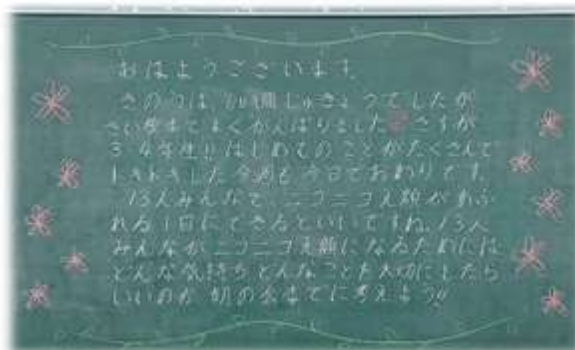 おはようございます。
きのうは 6時間じゅぎょうでしたが
さい後までよくがんばりました さすが
3.4年生!! はじめてのことがたくさんで
ドキドキした今週も今日でおわりです。
13人みんなで、ニコニコ笑顔があふ
れる1日にできるといいですね。13人
みんなが ニコニコ笑顔になるためには
どんな気持ち どんなことを大切にしたら
いいのか 朝の会までに考えよう!!